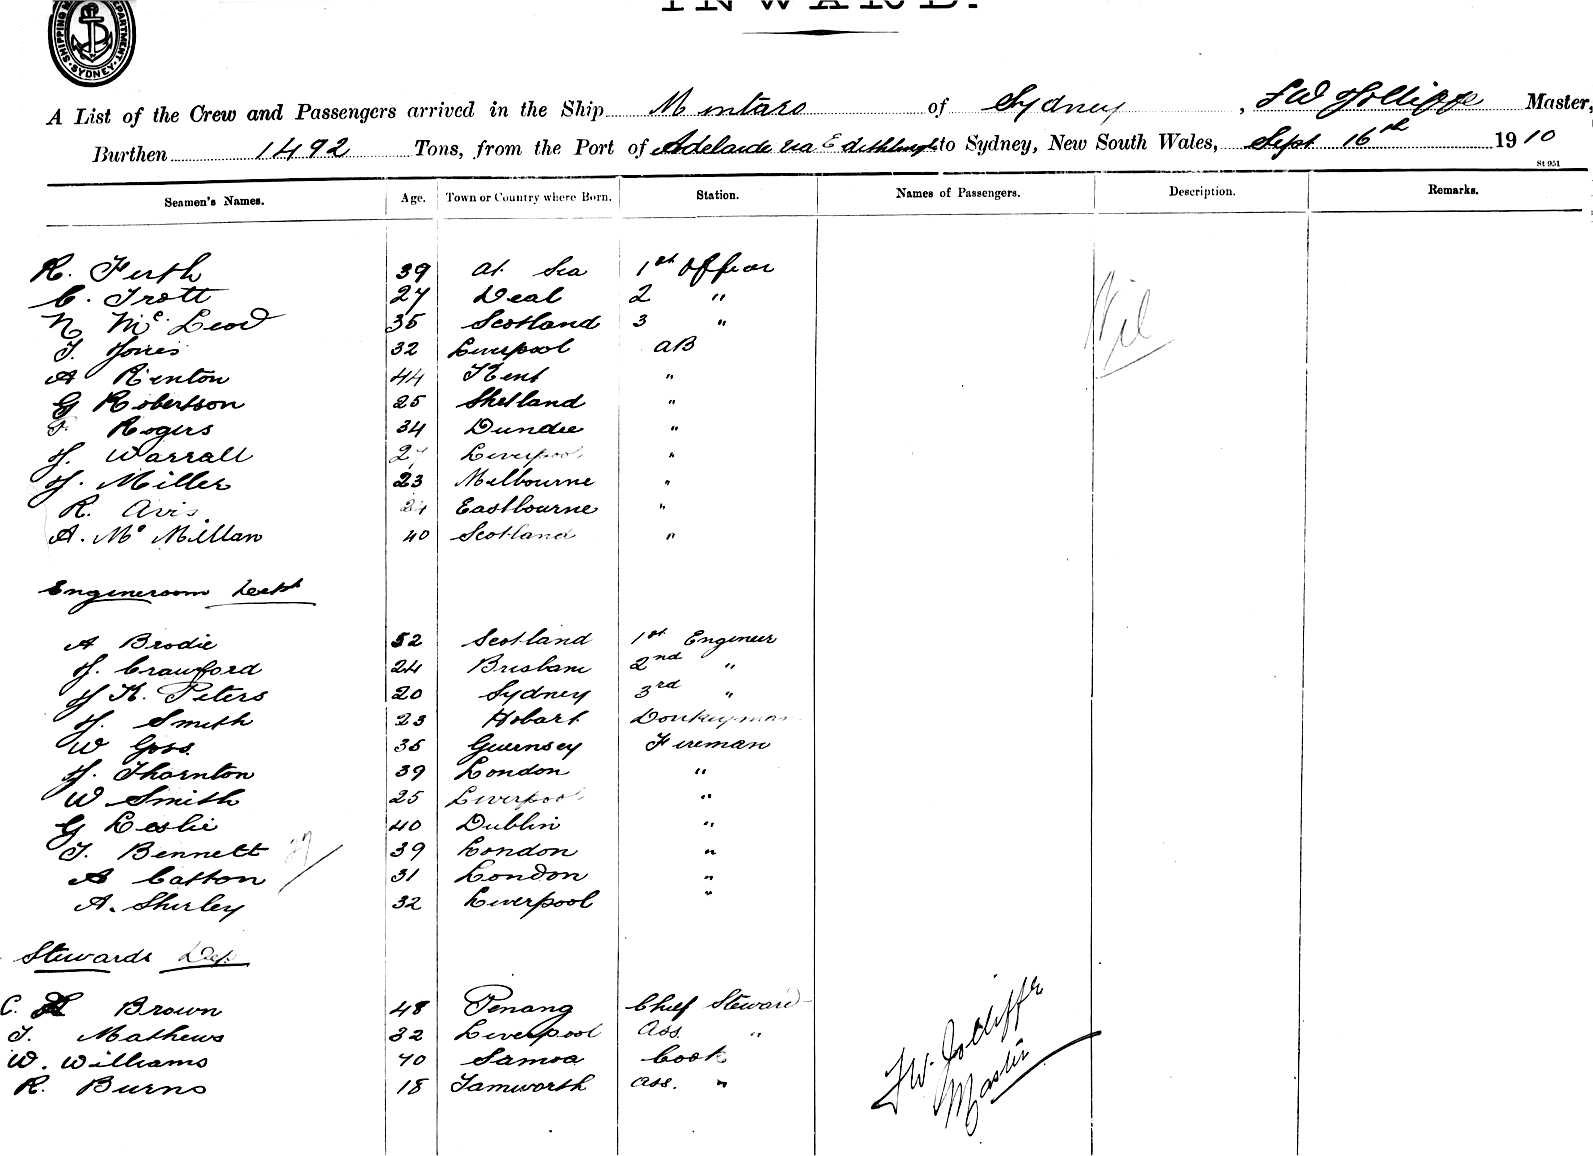 INWARD.
SHIPPING DEPARTMENT. SYDNEY
A List of the Crew and Passengers arrived in the Ship Mintaro of Sydney, F W Jolliffe Master,
Burthen 1492 Tons, from the Port of Adelaide via Edithburgh to Sydney, New South Wales, Sept 16th 1910
St 951
Seamen's Names. Age. Town or Country where Born. Station. Names of Passengers. Description. Remarks.
R. Firth 39 at Sea 1st Officer
C. Trott 27 Deal 2 "
N McLeod 35 Scotland 3 "
T. Jones 32 Liverpool AB
A Renton 44 Kent "
G Robertson 25 Shetland "
Rogers 34 Dundee "
J. Warrall 27 Liverpool "
J. Miller 23 Melbourne "
R. Avis Eastbourne "
A. Mc Millan 40 Scotland "
Nil
Engineroom Dept
A Brodie 52 Scotland 1st Engineer
J. Crawford 24 Brisbane 2nd "
J H. Peters 20 Sydney 3rd "
J. Smith 23 Hobart Donkeyman
W Goss. 35 Guernsey Fireman
J. Thornton 39 London "
W Smith 25 Liverpool "
G Leslie 40 Dublin "
T. Bennett 39 London "
A Catton 31 London "
A. Shirley 32 Liverpool "
Stewards Dep
C. Brown 48 Penang Chief Steward
T. Mathews 32 Liverpool Ass. "
W. Williams 40 Samoa Cook
R. Burns 18 Tamworth Ass. "
F W. Jolliffe
Master